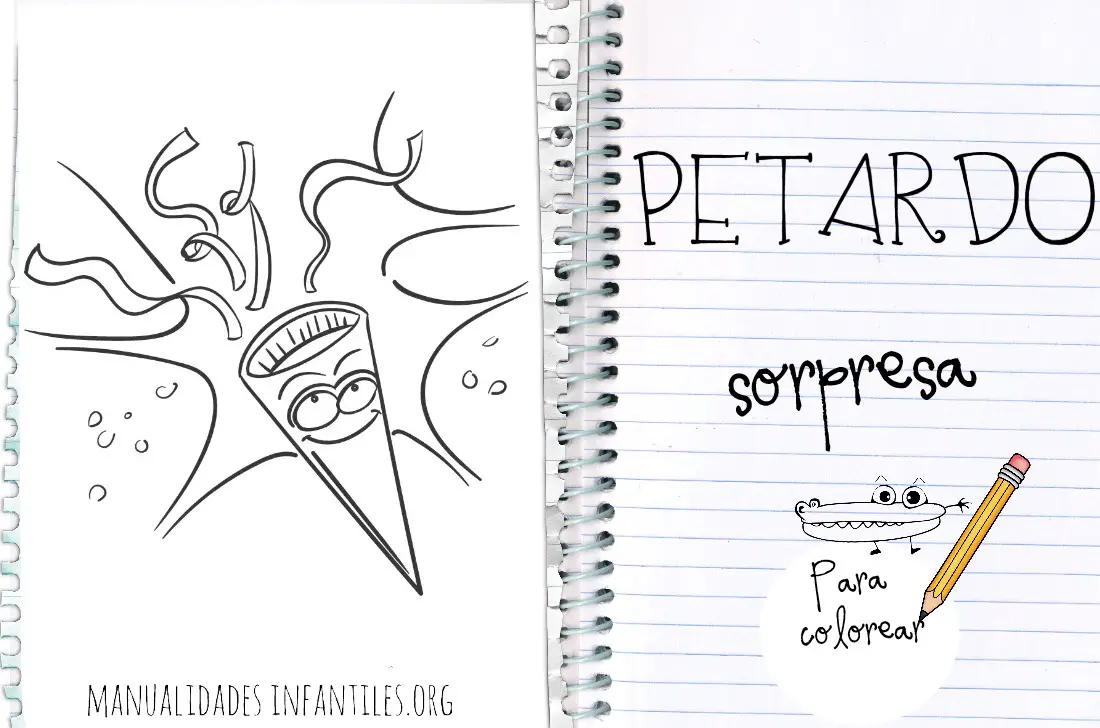 MANUALIDADES INFANTILES.ORG
PETARDO
sorpresa
Para
colorear